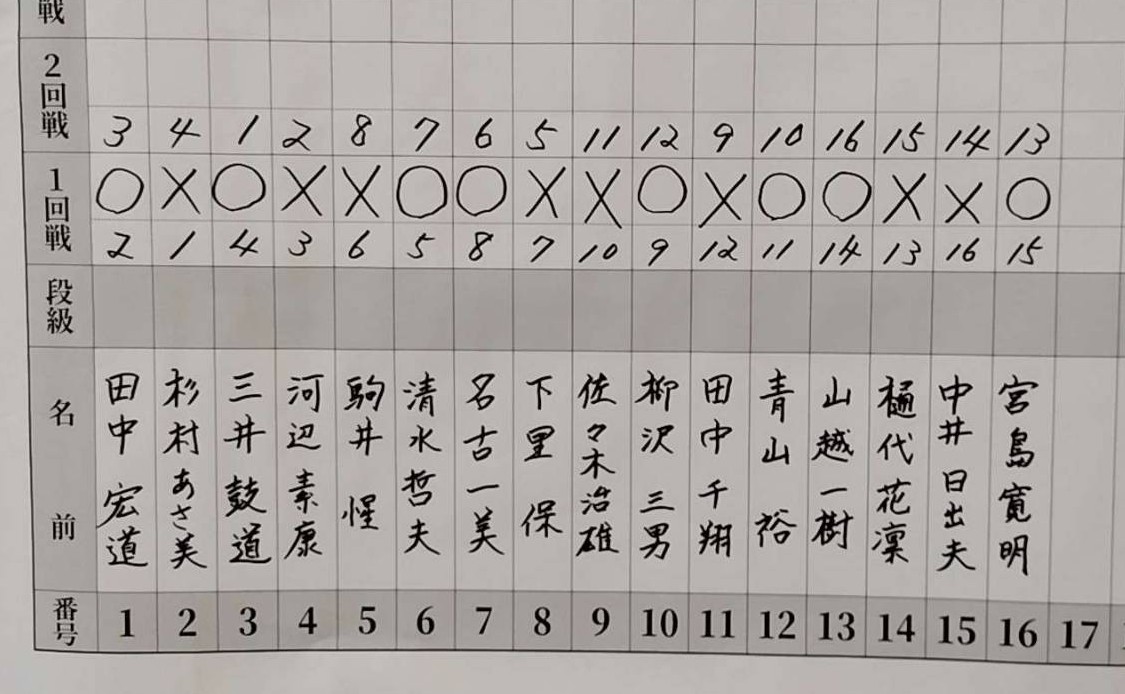 戦
2回戦 3 4 1 2 8 7 6 5 11 12 9 10 16 15 14 13
1回戦 ○ × ○ × × ○ ○ × × ○ × ○ ○ × × ○
2 1 4 3 6 5 8 7 10 9 12 11 14 13 16 15
段級
名前
田中 宏道
杉村あさ美
三井 鼓道
河辺素康
駒井 惺
清水哲夫
名古一美
下里 保
佐々木治雄
柳沢 三男
田中 千翔
青山 裕
山越一樹
樋代花凜
中井日出夫
宮島寛明
番号 1 2 3 4 5 6 7 8 9 10 11 12 13 14 15 16 17